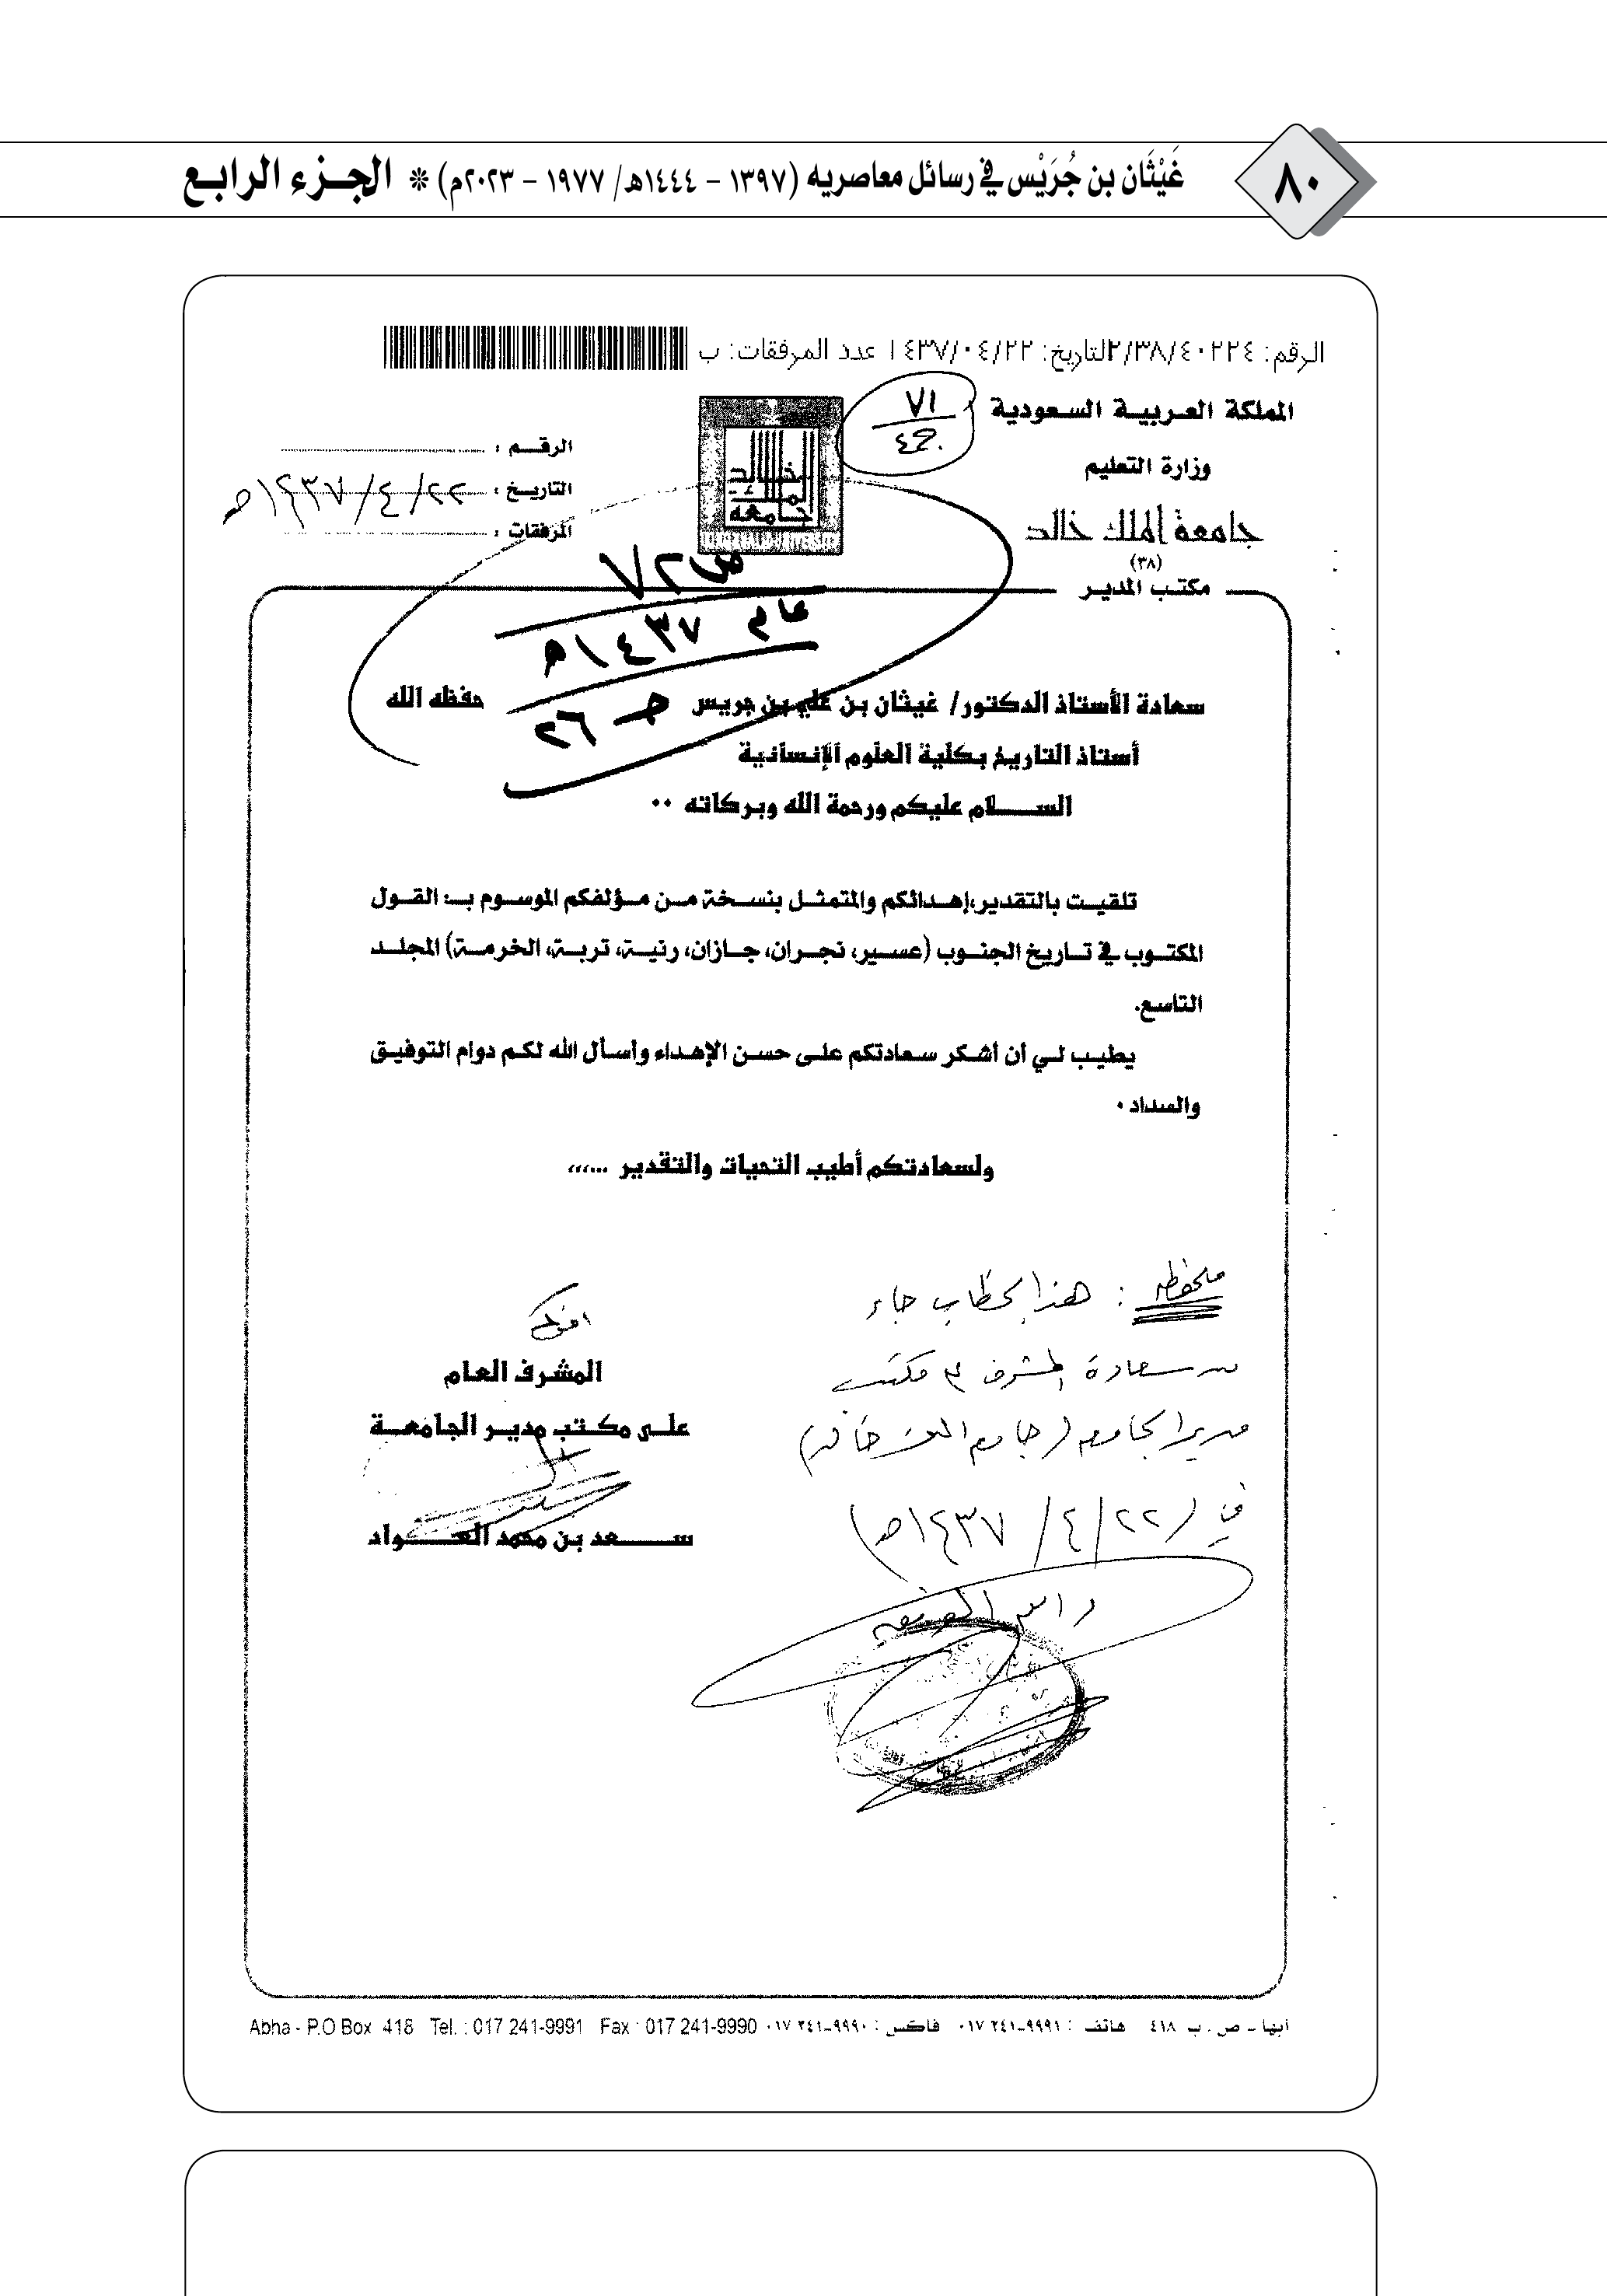 ٨٠
غَيْثَان بن جُرَيْس في رسائل معاصريه (١٣٩٧ – ١٤٤٤هـ/ ١٩٧٧ – ٢٠٢٣م) * الجزء الرابع
الرقم: ٢/٣٨/٤٠٢٢٤ التاريخ: ١٤٣٧/٠٤/٢٢ عدد المرفقات: ب
المملكة العربية السعودية
وزارة التعليم
جامعة الملك خالد
(٣٨)
مكتب المدير
٧١
الرقم :
التاريخ : ٢٢/٤/١٤٣٧هـ
المرفقات :
جامعة الملك خالد
KING KHALID UNIVERSITY
ص٢٧
عام ١٤٣٧هـ
جـ ٢٦
سعادة الأستاذ الدكتور/ غيثان بن علي بن جريس حفظه الله
أستاذ التاريخ بكلية العلوم الإنسانية
السلام عليكم ورحمة الله وبركاته ..
تلقيت بالتقدير،إهدائكم والمتمثل بنسخة من مؤلفكم الموسوم بـ: القول
المكتوب في تاريخ الجنوب (عسير، نجران، جازان، رنية، تربة، الخرمة) المجلد
التاسع.
يطيب لي أن أشكر سعادتكم على حسن الإهداء وأسأل الله لكم دوام التوفيق
والسداد .
ولسعادتكم أطيب التحيات والتقدير ......
أخوك
المشرف العام
على مكتب مدير الجامعة
سعد بن محمد العواد
ملحظه : هذا الخطاب جاء
من سعادة المشرف على مكتب
مدير الجامعه (جامعه الملك خالد)
في (٢٢/٤/١٤٣٧هـ)
أبها - ص . ب ٤١٨ هاتف : ٩٩٩١-٢٤١ ٠١٧ فاكس : ٩٩٩٠-٢٤١ ٠١٧ Abha - P.O Box 418 Tel. : 017 241-9991 Fax : 017 241-9990